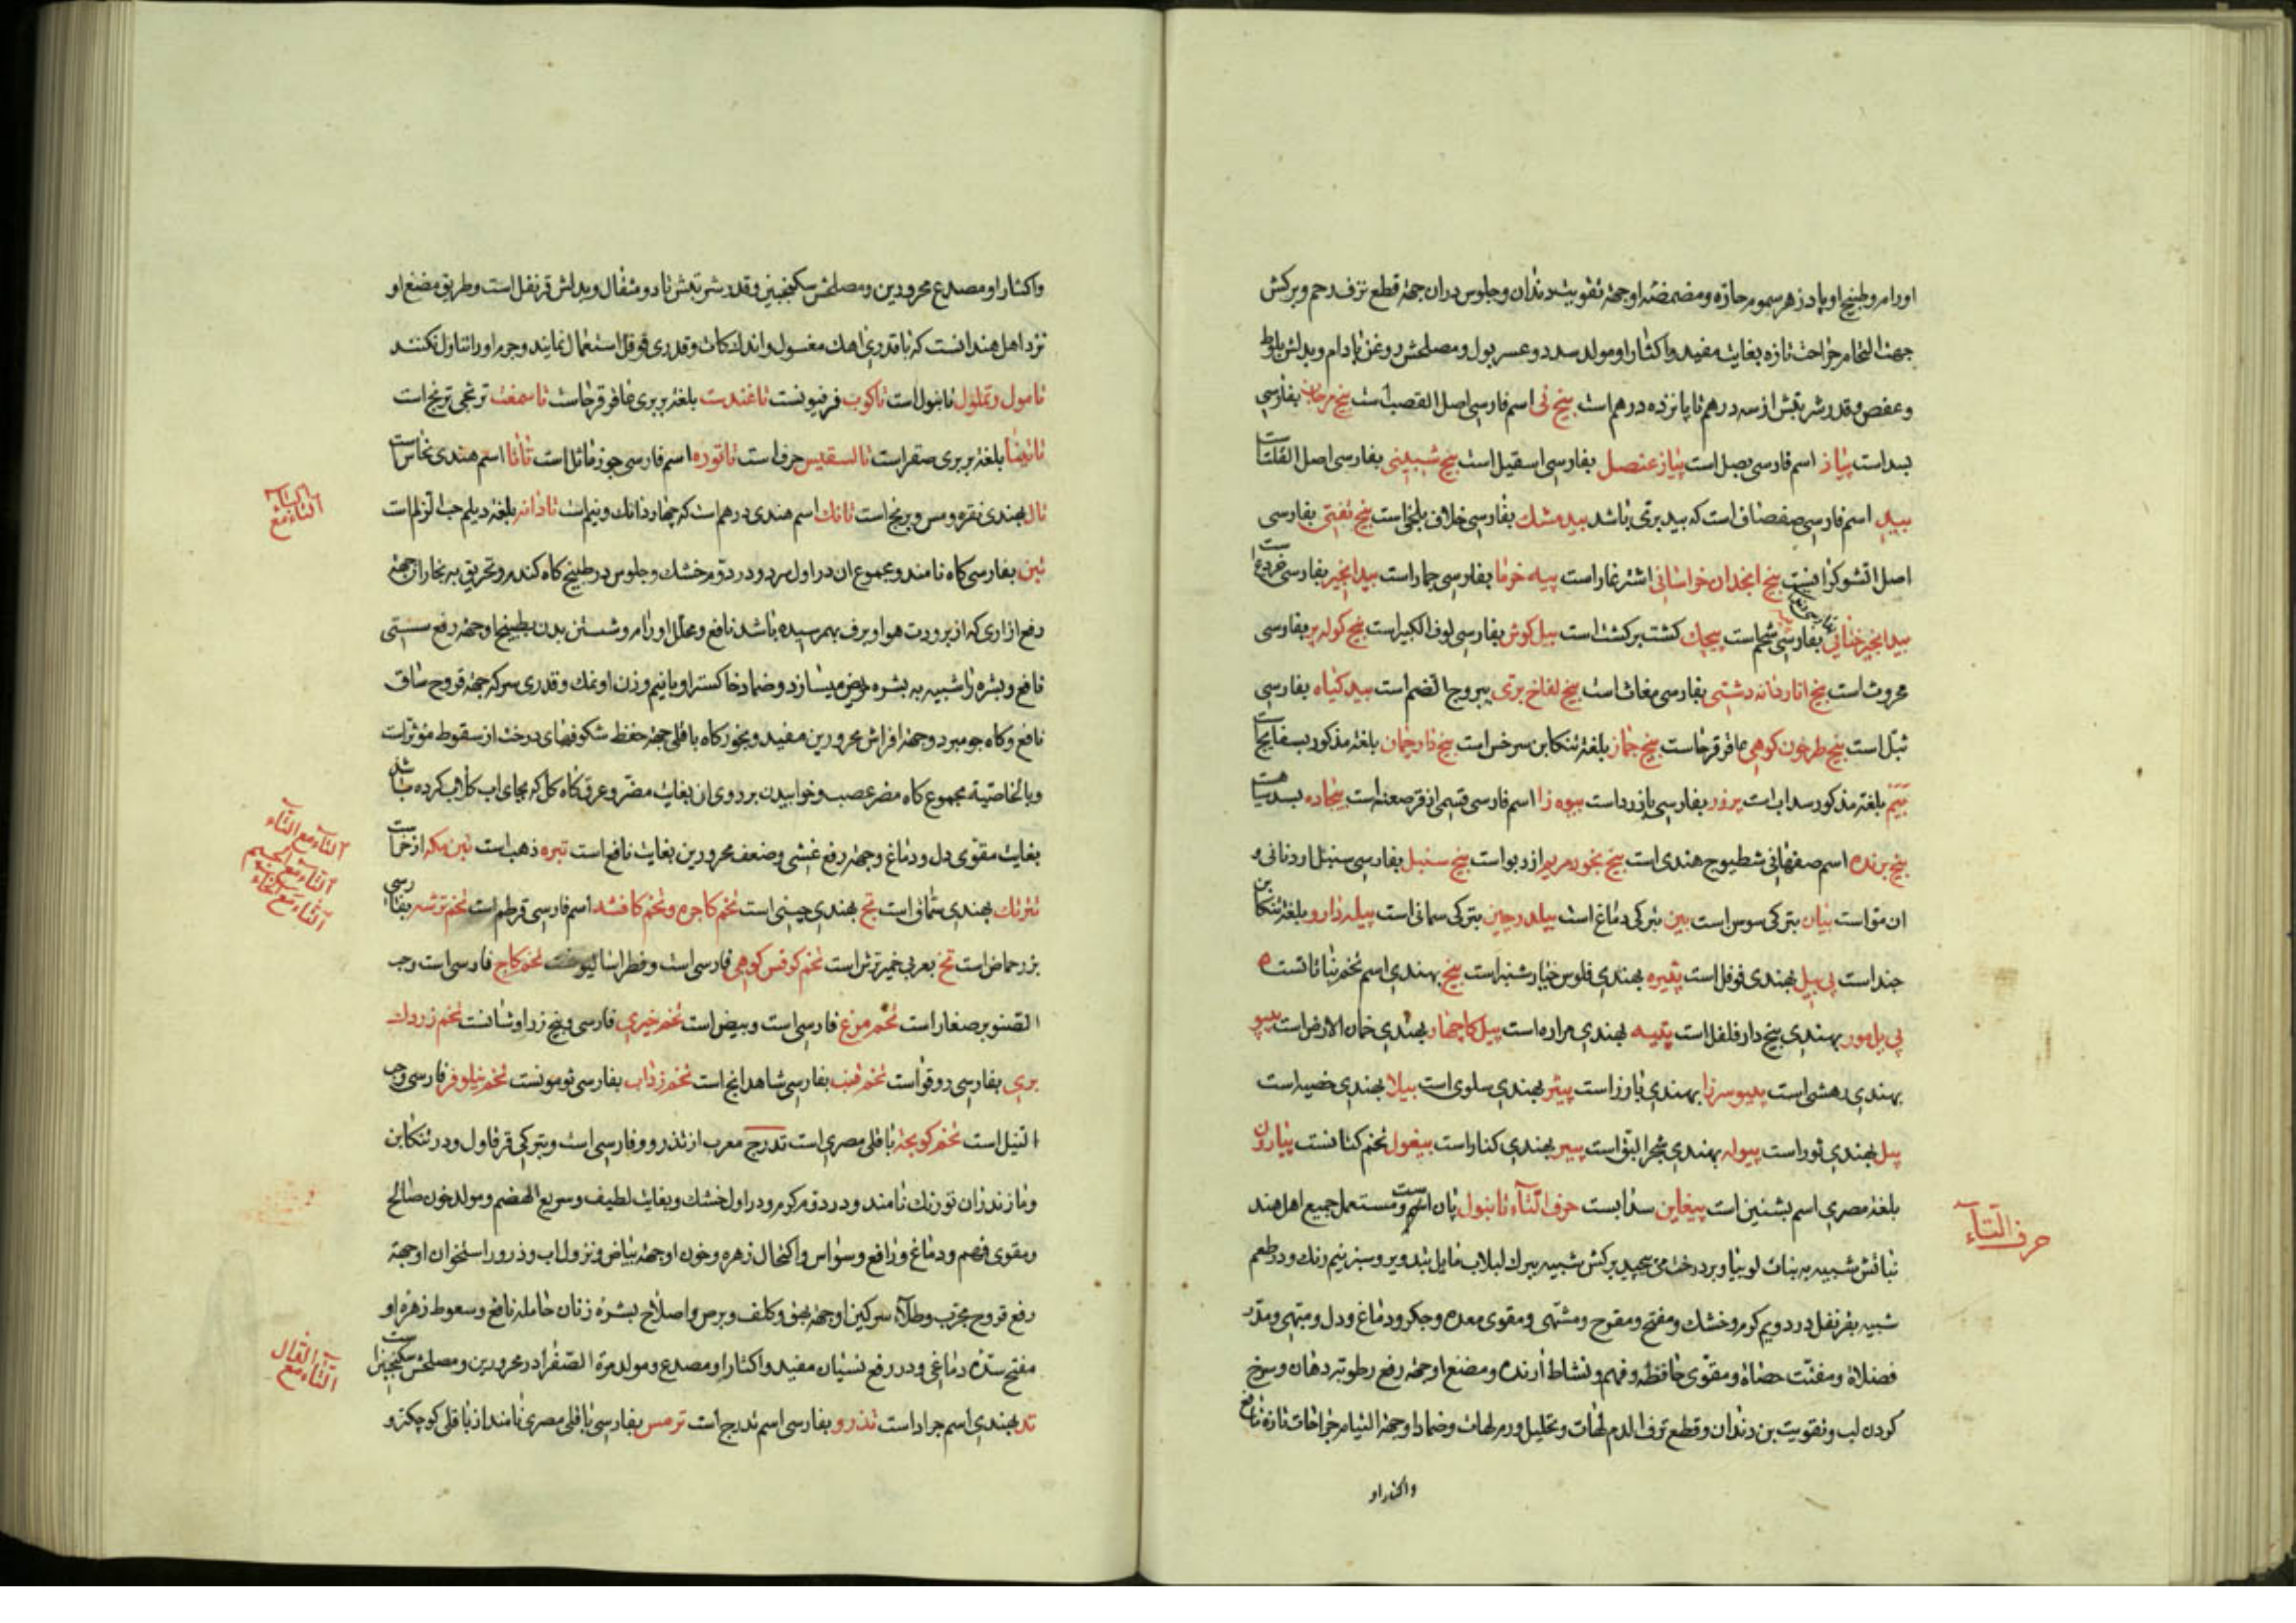 اورام و طبیخ او پادزهر سموم حاره و مضمضهٔ او جههٔ تقویت دندان و جلوس دران جههٔ قطع نزف رحم و برکش
جهت التحام جراحت تازه بغایت مفید و اکثار او مولد سدد و عسر بول و مصلحش روغن بادام و بدلش بلوط
و عفص و قدر شربتش از سه درهم تا پانزده درهم است بیخ نی اسم فارسی اصل القصب است بیخ مرجان بفارسی
بسد است پیاز اسم فارسی بصل است پیاز عنصل بفارسی اسقیل است بیخ شبینی بفارسی اصل الفلتا است
بید اسم فارسی صفصاف است که بید بری باشد بید مشک بفارسی خلاف بلخی است بیخ تفتی بفارسی
اصل است بیخ انجدان خراسانی اشترغار است پیه خرما بفارسی جمار است بیدانجیر بفارسی خروع است
بیدانجیر ختائی بفارسی است پیچک کشت برکشت است پیل کوش بفارسی لوف الکبیر است بیخ کوله پر بفارسی
محروث است بیخ انار دانه دشتی بفارسی مغاث است بیخ لفاح بری یبروج الصنم است بید کیاه بفارسی
ثیل است بیخ طرخون کوهی عاقرقرحاست بیخ جماز بلغهٔ تنکابن سرخس است بیخ بلغهٔ مذکور بسفایج است
بیم بلغهٔ مذکور سداب است بفارسی است بیوه زا اسم فارسی قسمی از قرصعنه است بیجاده بسد است
بیخ برنده اسم صفهانی شطیوج هندی است بیخ بخور مریم ازربو است بیخ سنبل بفارسی سنبل اردنانی و
ان مو است بیان بترکی سوس است بین بترکی دماغ است بیلدرچین بترکی سمانی است بیله دارو بلغهٔ تنکابن
جند است پی پیل بهندی فوفل است بهندی فلوس خیارشنبر است بیخ بهندی اسم تخم نباتاتست
پی پل مور بهندی بیخ دارفلفل است پتیه بهندی مراره است بهندی خمان الارض است پیپو
بهندی است بهندی بارزا است پیتر بهندی سلوی است پیلا بهندی خصیه است
پیل بهندی ثور است پیوله بهندی شجر البق است بیر بهندی کنار است بیغول تخم کتانست پیارون
بلغهٔ مصری اسم بشنین است پیغاین سدابست حرف التآء تانبول پان است و مستعمل جمیع اهل هند
نباتش شبیه به نبات لوبیا و بر درخت می پیچد برکش شبیه ببرک لبلاب مایل بتدویر و سبز نیم رنک و در طعم
شبیه بقرنفل در دویم کرم و خشک و مفتح و مقرح و مشتهی و مقوی معده و جکر و دماغ و دل و مبهی و مدر
فضلات و مفتت حصاة و مقوی حافظه و فهم و نشاط ارنده و مضغ او جههٔ رفع رطوبه دهان و سرخ
کردن لب و تقویت بن دندان و قطع نزف الدم لهات و تحلیل ورم لهات و ضماد او جههٔ التیام جراحات تازه نافع
واکثار او
حرف التآء
واکثار او مصدع محرورین و مصلحش سکنجبین و قدر شربتش تا دو مثقال و بدلش قرنفل است و طریق مضغ او
نزد اهل هند انست که با قدری اهک مغسول و اندک کات و قدری فوفل استعمال نمایند و جرم او را تناول نکنند
تامول و تملول تانبول است تاکوب فرفیونست تاغندست بلغهٔ بربری عاقرقرحاست ترنجی ترنج است
بلغهٔ بربری صقر است تالسقیس حرف است تاتوره اسم فارسی جوز ماثل است تانبا اسم هندی نحاس است
تال بهندی نقره و مس و برنج است تانک اسم هندی درهم است که چهار دانک و نیم است تادانه بلغهٔ دیلم حب الزلم است
تبن بفارسی کاه نامند و مجموع ان در اول سرد و در دوم خشک و جلوس در طبیخ کاه کندم و تحریق به بخار او جههٔ
رفع ازاری که از برودت هوا و برف بهم رسیده باشد نافع و محلل اورام و شستن بدن بطبیخ او جههٔ رفع سستی
نافع و بشره را شبیه به بشره مریض میسازد و ضماد خاکستر او با نیم وزن او نمک و قدری سرکه جههٔ قروح ساق
نافع و کاه جو مبرد و جههٔ افراش محرورین مفید و بخور کاه باقلی جههٔ حفظ شکوفهای درخت از سقوط مؤثر است
و بالخاصیة مجموع کاه مضر عصب و خوابیدن بر روی ان بغایت مضر و عرق کاه کل که بجای اب کلاب کرده باشد
بغایت مقوی دل و دماغ و جههٔ رفع غشی و ضعف محرورین بغایت نافع است تبره ذهب است تبن مکه اذخر است
تترنک بهندی سماق است تج بهندی است تخم کاجره و تخم کافشه اسم فارسی قرطم است تخم ترشه بفارسی
بزر حماض است تخ بعربی خمیر ترش است تخم کرفس کوهی فارسی است و فطراسالیونست تخم کاج فارسی است و حب
الصنوبر صغار است تخم مرغ فارسی است و بیض است تخم خیری فارسی و تخم زردک
بری بفارسی دوقو است تخم قنب بفارسی شاهدانج است تخم بفارسی تومونست تخم نیلوفر فارسی و حب
النیل است تخم کوبجه باقلی مصری است تدرج معرب از تذرو و فارسی است و بترکی قرقاول و در تنکابن
و مازندران تورنک نامند و در دوم کرم و در اول خشک و بغایت لطیف و سریع الهضم و مولد خون صالح
و مقوی فهم و دماغ و رافع وسواس و اکتحال زهره و خون او جههٔ بیاض و نزول اب و ذرور استخوان او جههٔ
رفع قروح مجرب و طلاء سرکین او جههٔ بهق و کلف و برص و اصلاح بشرهٔ زنان حامله نافع و سعوط زهرهٔ او
مفتح سدهٔ دماغی و در رفع نسیان مفید و اکثار او مصدع و مولد مرة الصفرا در محرورین و مصلحش سکنجبین است
تد بهندی اسم جراد است تذرو بفارسی اسم تدرج است ترمس بفارسی باقلی مصری نامند از باقلی کوچکتر و
التآء مع الباء
التآء مع التآء
التآء مع الجیم
التآء مع الخاء
التآء مع الدال